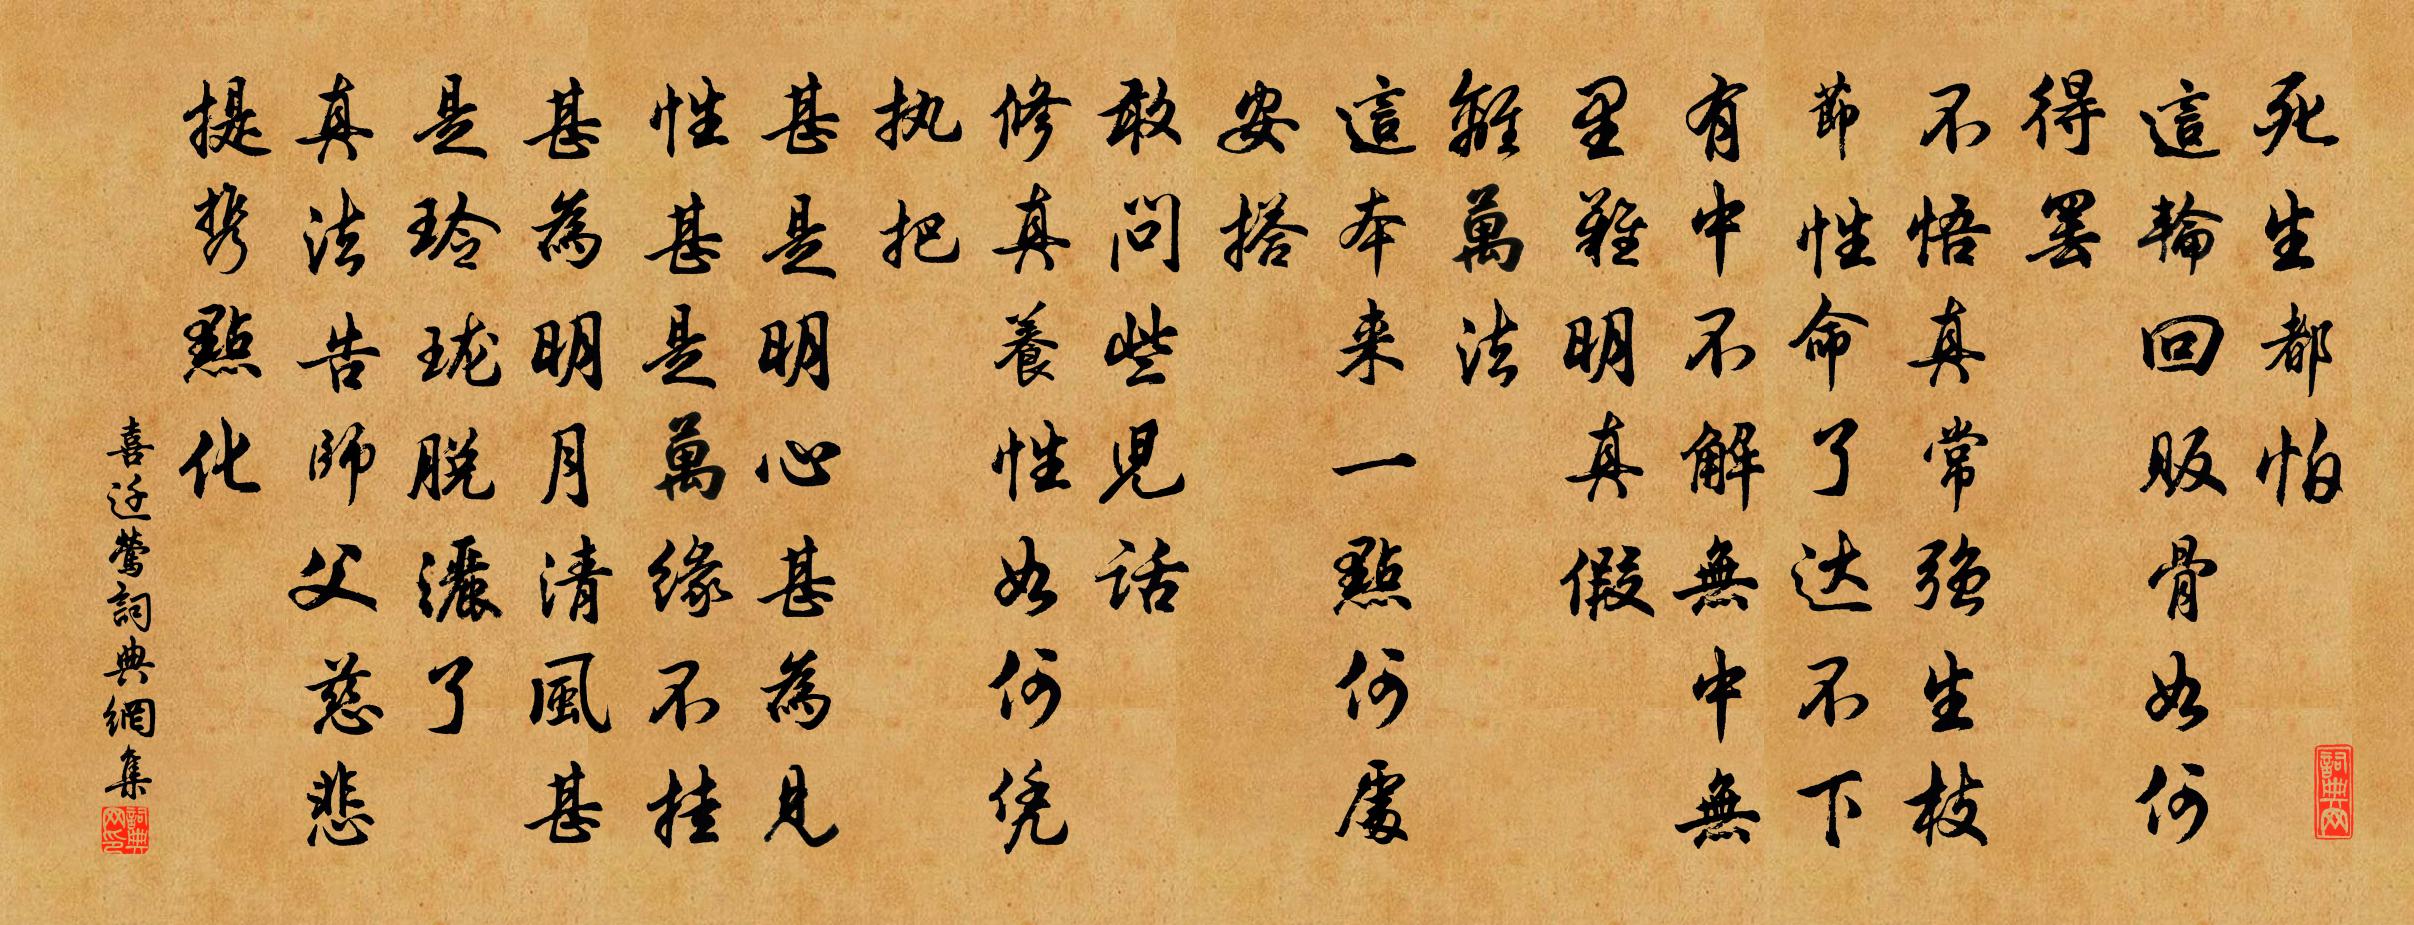 死生都怕
這輪回販骨如何
得罢
不悟真常强生枝
節性命了达不下
有中不解無中無
里難明真假
離萬法
這本来一點何處
安搭
敢問些兒話
修真養性如何凭
执把
甚是明心甚為見
性甚是萬緣不挂
甚為明月清風甚
是玲珑脱灑了
真法告師父慈悲
提携點化
喜迁鶯詞典網集
詞典网
詞典网印